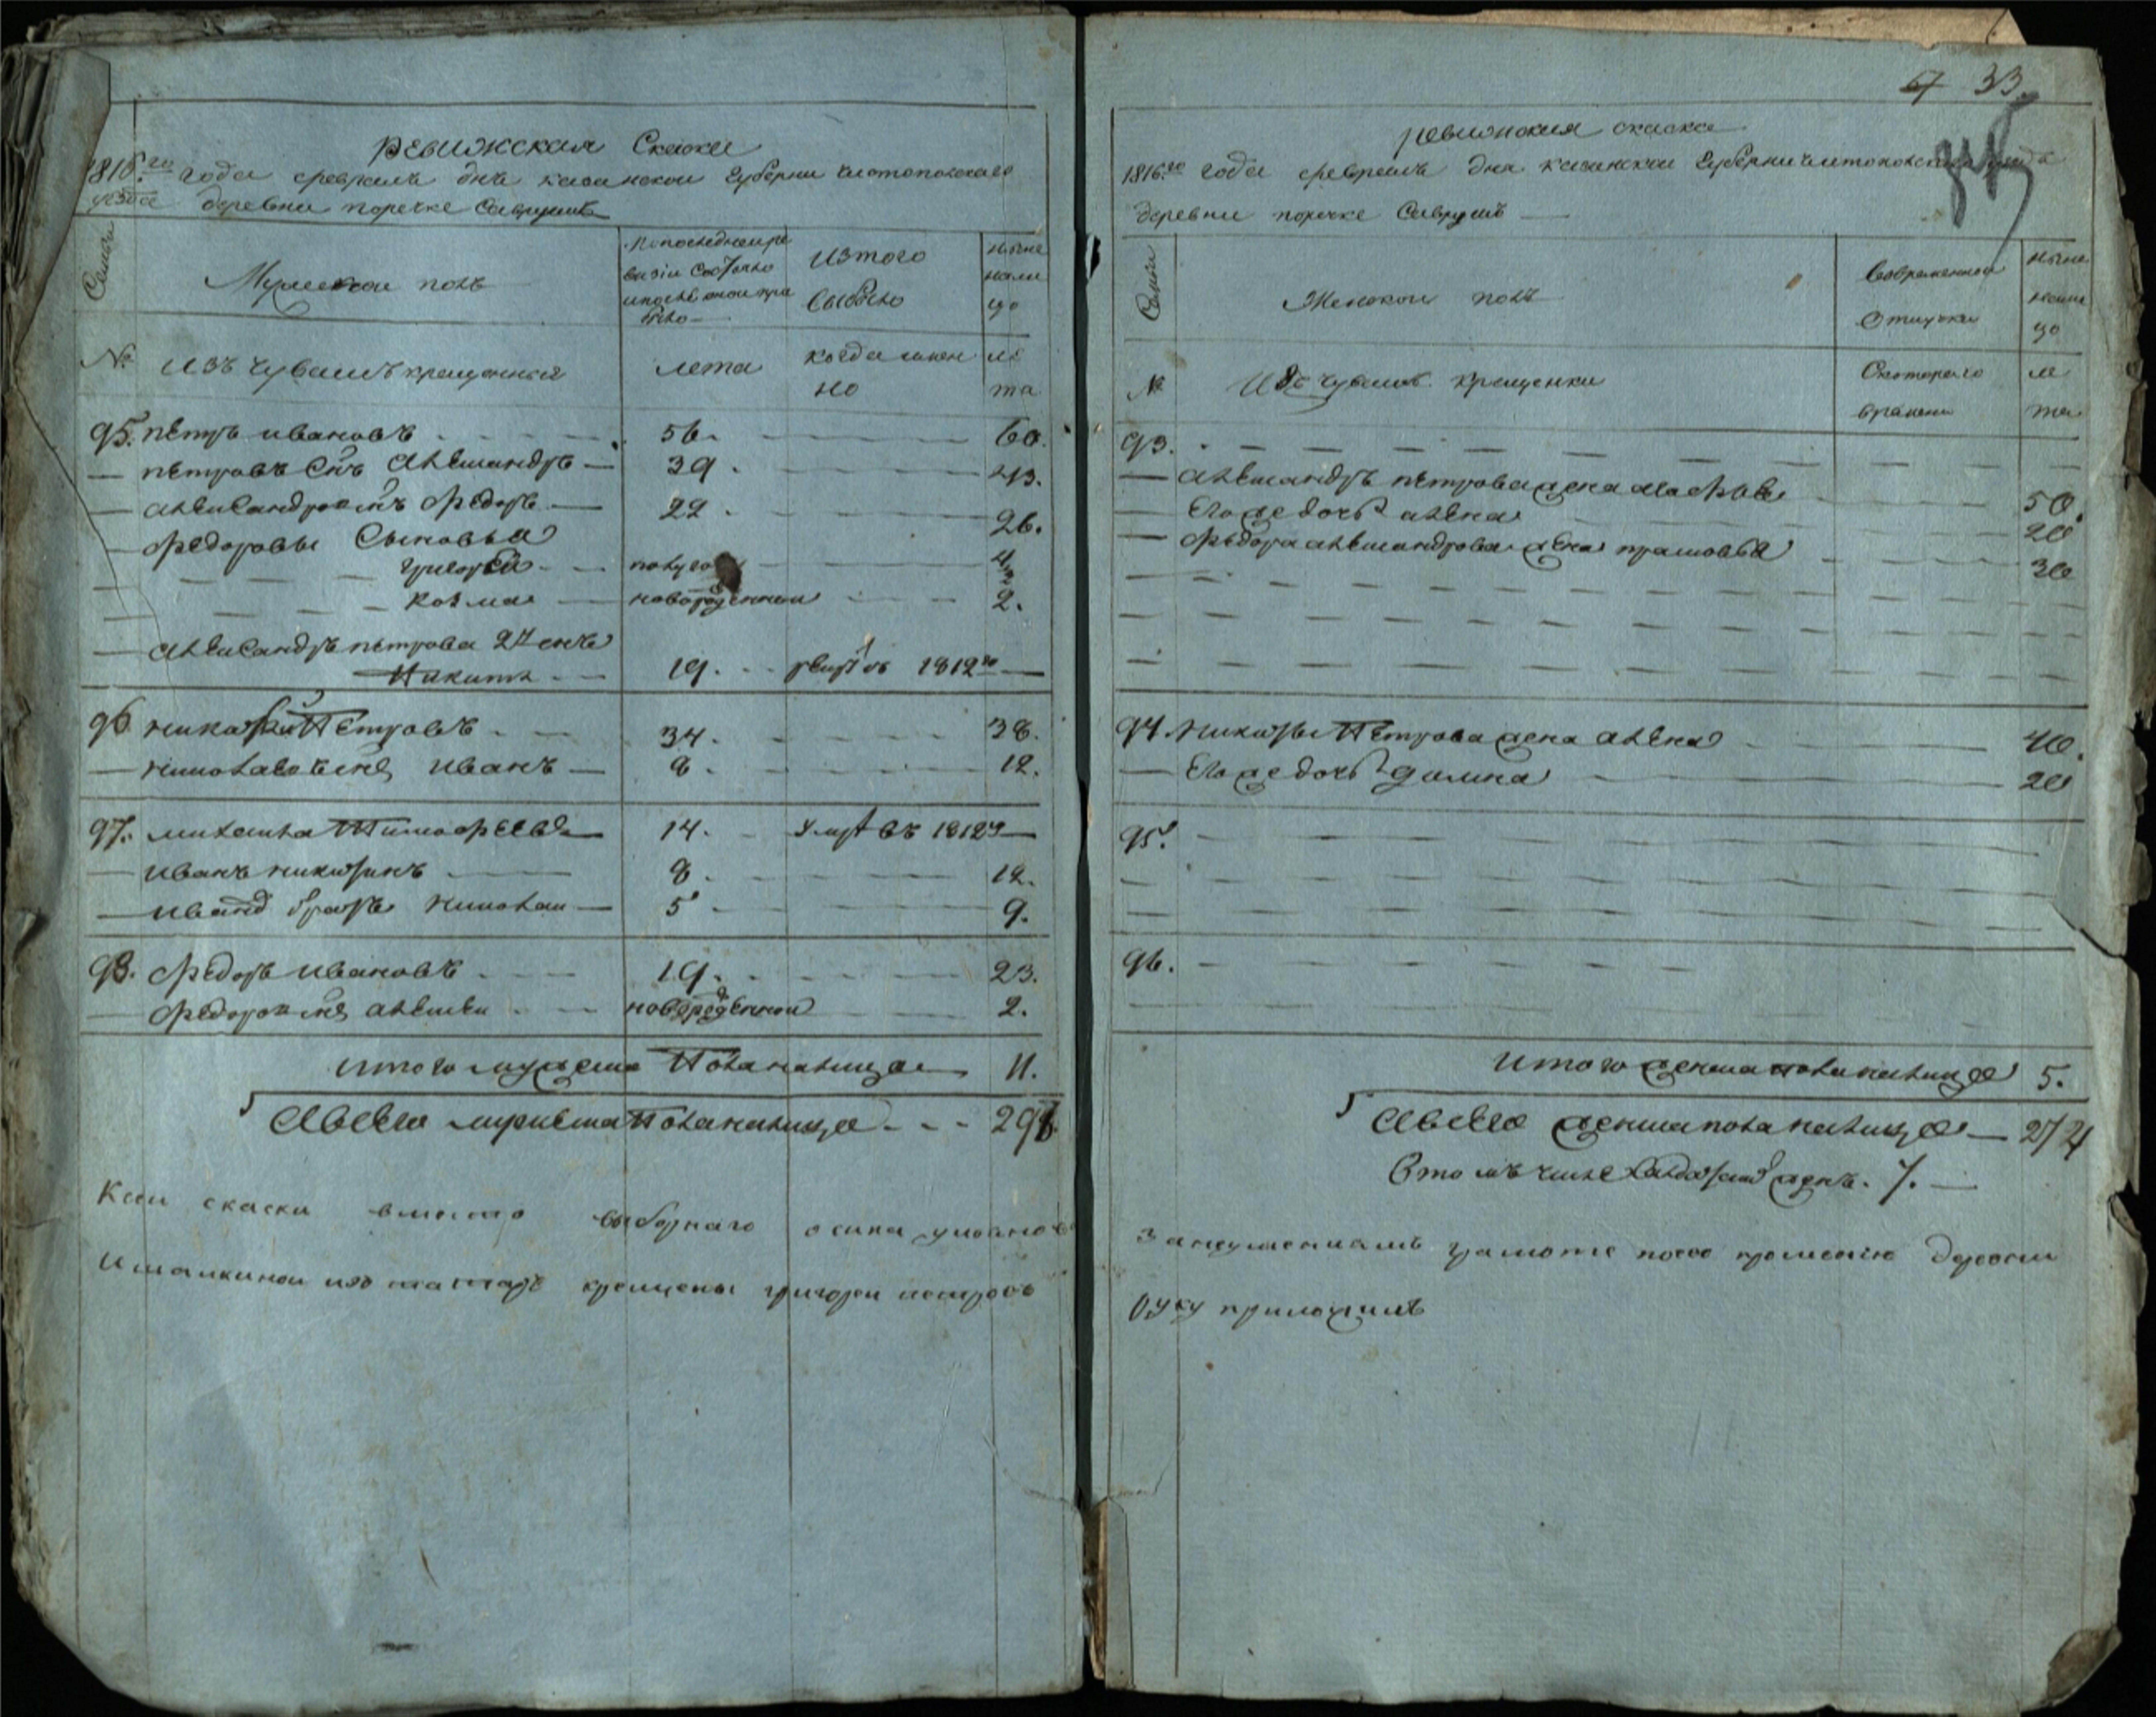 ревижская Скаска
1816го года февраль днь казанской Губернии чистопольскаго
уезда деревни поречке Саврушь
Семьи
Мужеской полъ
По последней ре
визии состояло
и после оной при
было
Изтого
выбыло
ныне
нали
цо
№
Изъ чувашъ крещенныя
лета
когда имен
но
ле
та
95. петръ ивановъ 56. 60.
петровъ Снъ Александръ 39. 43.
Александровъ снъ Федоръ 22 26.
Федоровы Сыновья
григорей полуго 4
козма новорожденной 2.
Александръ петрова 2й снъ
Никита 19. 1812го
96 Никифоръ Петровъ 34. 38.
Николаевъ снъ Иванъ 8. 12.
97. михаила Тимофеевъ 14. умре въ 1812г
иванъ никитинъ 8. 12.
иванъ братъ Николай 5 9.
98. Федоръ ивановъ 19. 23.
Федоровъ снъ алексей новорожденной 2.
итого мужеска Пола налицо 11.
Авсего мужеска Пола налицо 298
К сей скаски вместо выборнаго осипа
Ишалкиной изъ татаръ крещены григорей петровъ
67 33.
ревижская скаска
1816го года февраль дня казанской Губернии чистопольскаго уезда
деревни поречке Саврушь
Семьи
Женской полъ
Вовременной
отлучки
ныне
нали
цо
№
Изъ чувашъ крещенки
Скоторого
времени
ле
та
93.
Александръ петрова жена Марфа 50.
Его же дочь алена 20
Федора александрова жена прасковья 30
94. Никифора Петрова жена алена 40.
Его же дочь 20
95.
96.
итого женска пола налицо 5.
Авсего женска пола налицо 274
Втомъ числе женъ. 7.
занеумениемъ грамоте поево прошению деревни
руку приложилъ